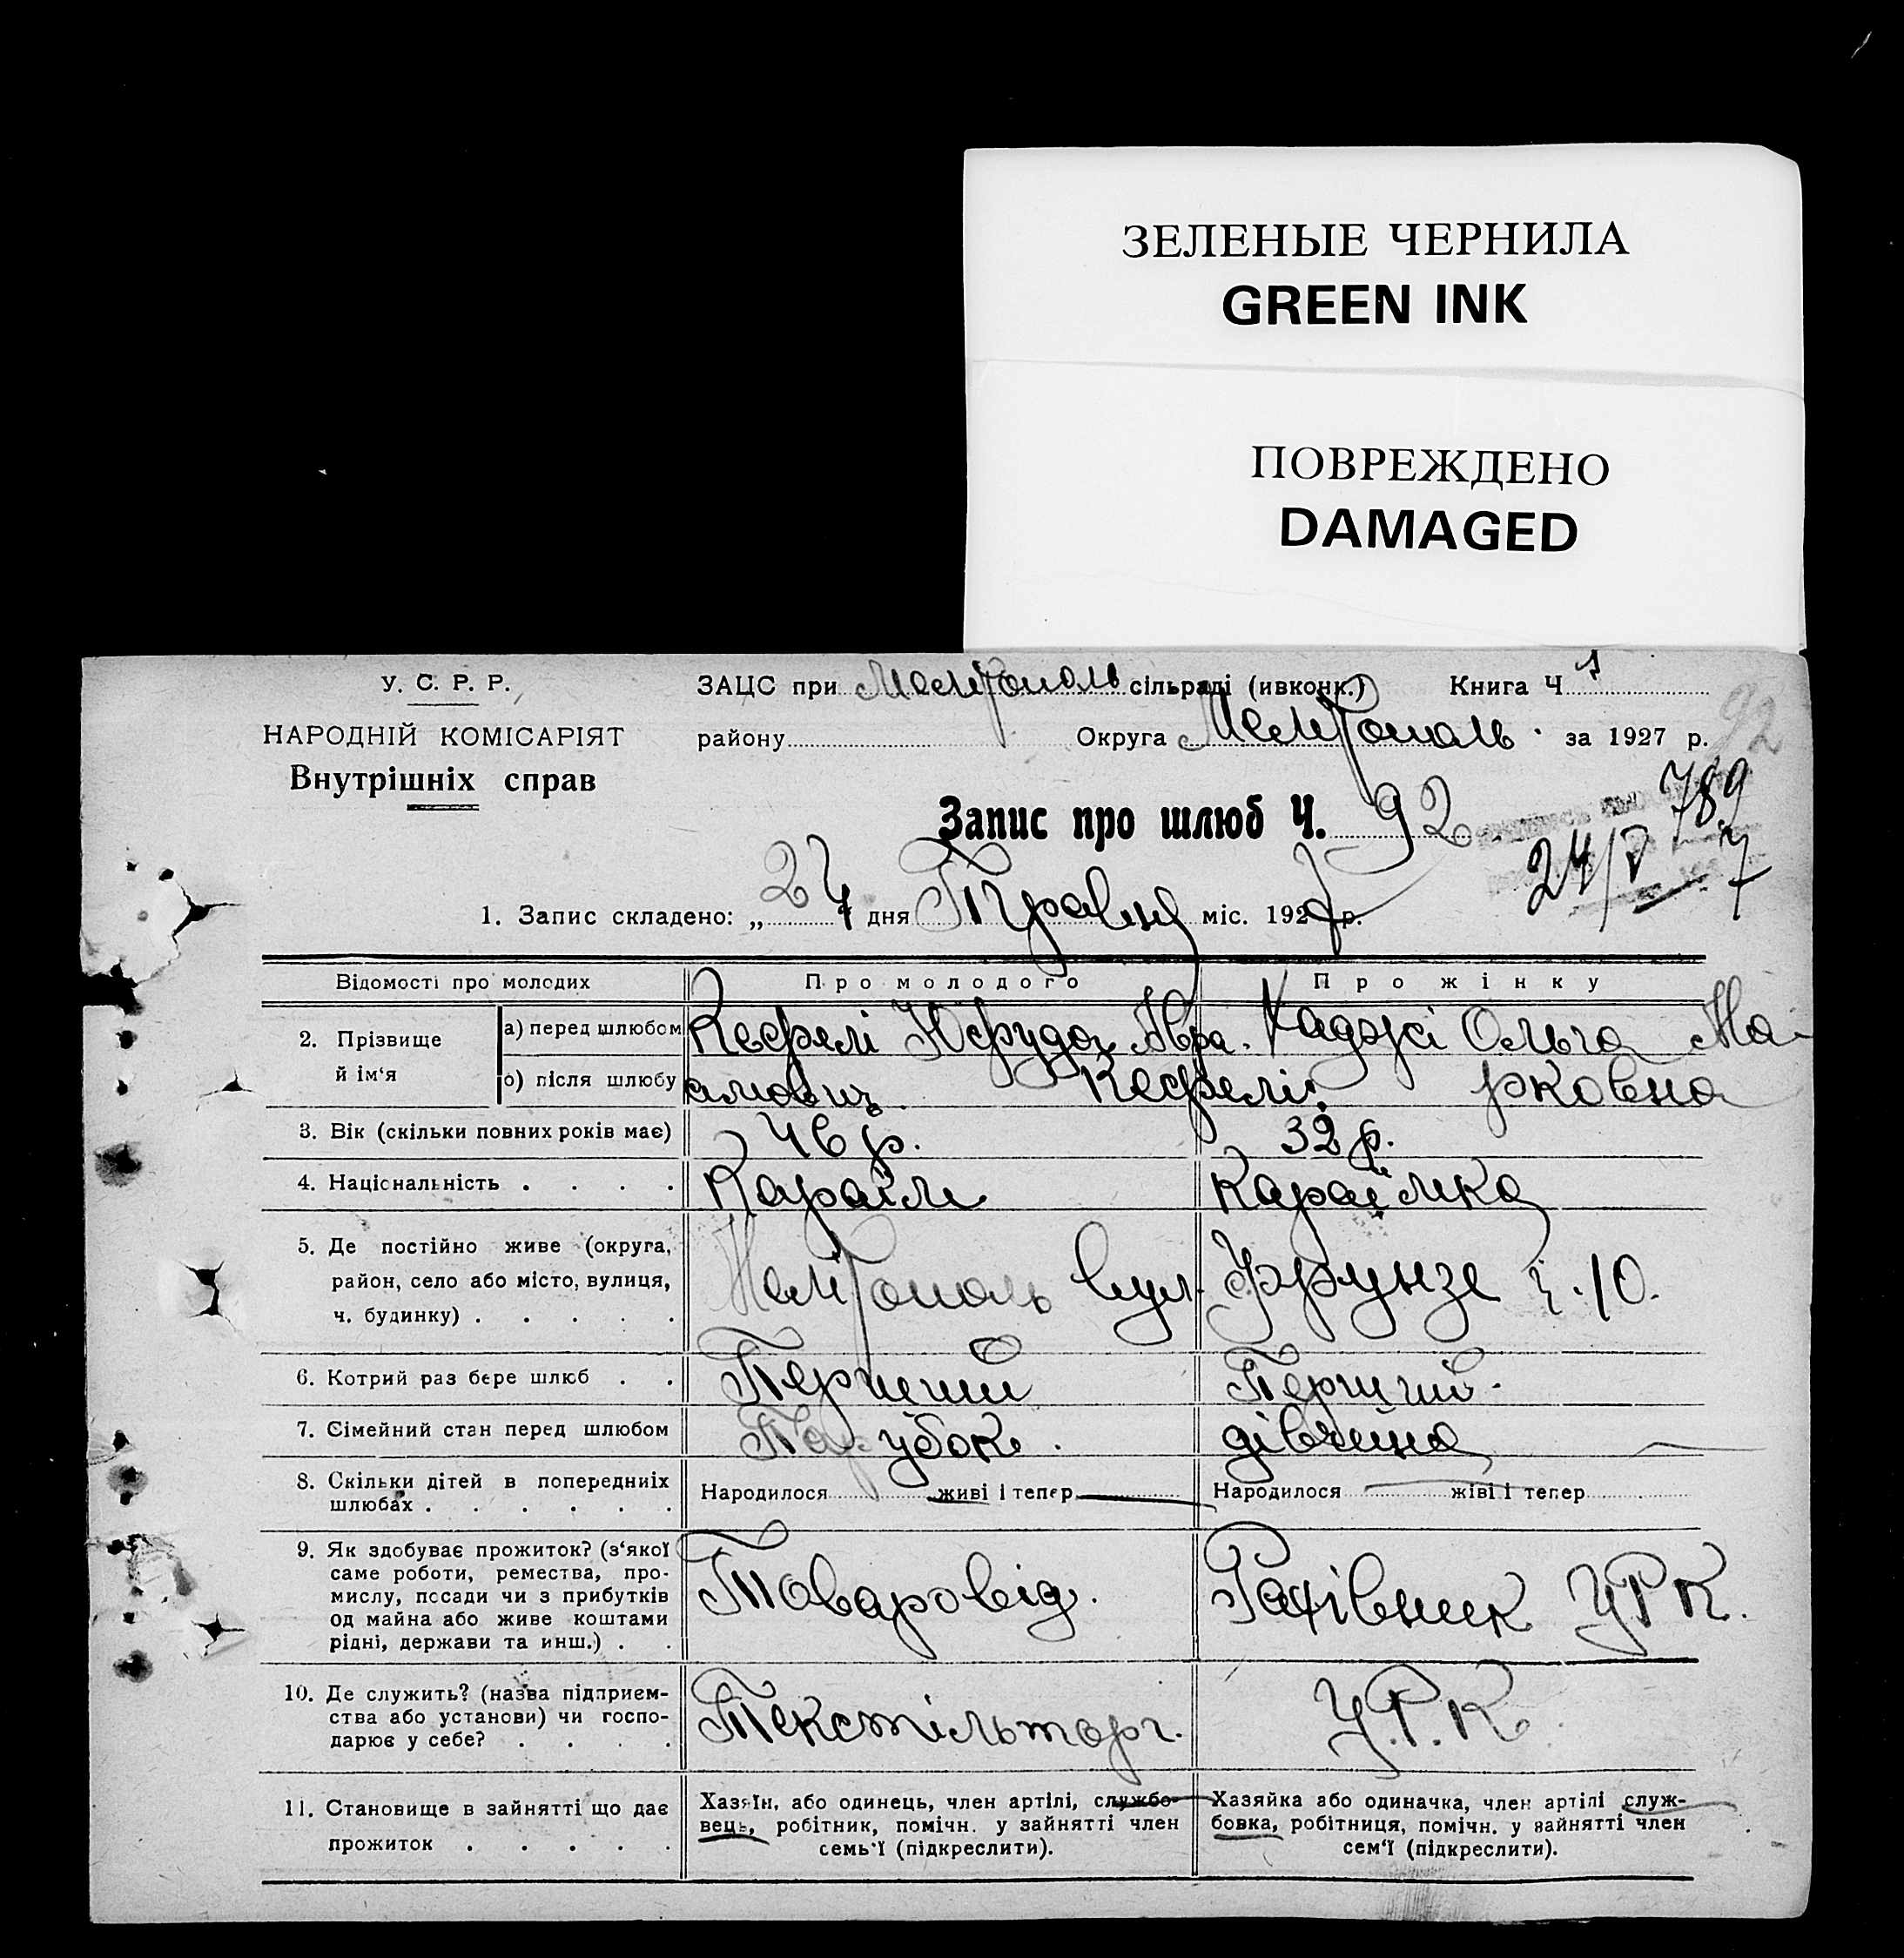 ЗЕЛЕНЫЕ ЧЕРНИЛА
GREEN INK
ПОВРЕЖДЕНО
DAMAGED
У. С. Р. Р.
ЗАЦС при Мелітополь сільраді (ивконк.) Книга Ч 1
НАРОДНІЙ КОМІСАРІЯТ
району Округа Мелітополь за 1927 р.
92
Внутрішніх справ
789
Запис про шлюб Ч. 92
24/V
7
1. Запис складено: „24 дня Травня міс. 1927 р.
Відомості про молодих
Про молодого
Про жінку
2. Прізвище й ім‘я
а) перед шлюбом
Кефелі Юфуда Авра- Хаджі Ольга Ма-
о) після шлюбу
амович Кефелі. рковна
3. Вік (скільки повних років має) 46 р. 32 р.
4. Національність . . . . Караїм Караїмка
5. Де постійно живе (округа,
район, село або місто, вулиця,
ч. будинку) . . . . .
Мелітополь вул. Фрунзе ч. 10.
6. Котрий раз бере шлюб . . Перший Перший.
7. Сімейний стан перед шлюбом Парубок. дівчина
8. Скільки дітей в попередниіх
шлюбах . . . . . .
Народилося живі і тепер Народилося жіві і тепер
9. Як здобуває прожиток? (з‘якої
саме роботи, ремества, про-
мислу, посади чи з прибутків
од майна або живе коштами
рідні, держави та инш.) . .
Товаровід. Рахівник УРК.
10. Де служить? (назва підприем-
ства або установи) чи госпо-
дарює у себе? . . . .
Текстільторг. У.Р.К.
11. Становище в зайнятті що дає
прожиток . . . . .
Хазяїн, або одинець, член артілі, службо-
вець, робітник, помічн. у зайнятті член
семь‘ї (підкреслити).
Хазяйка або одиначка, член артілі служ-
бовка, робітниця, помічн. у зайнятті член
сем‘ї (підкреслити).